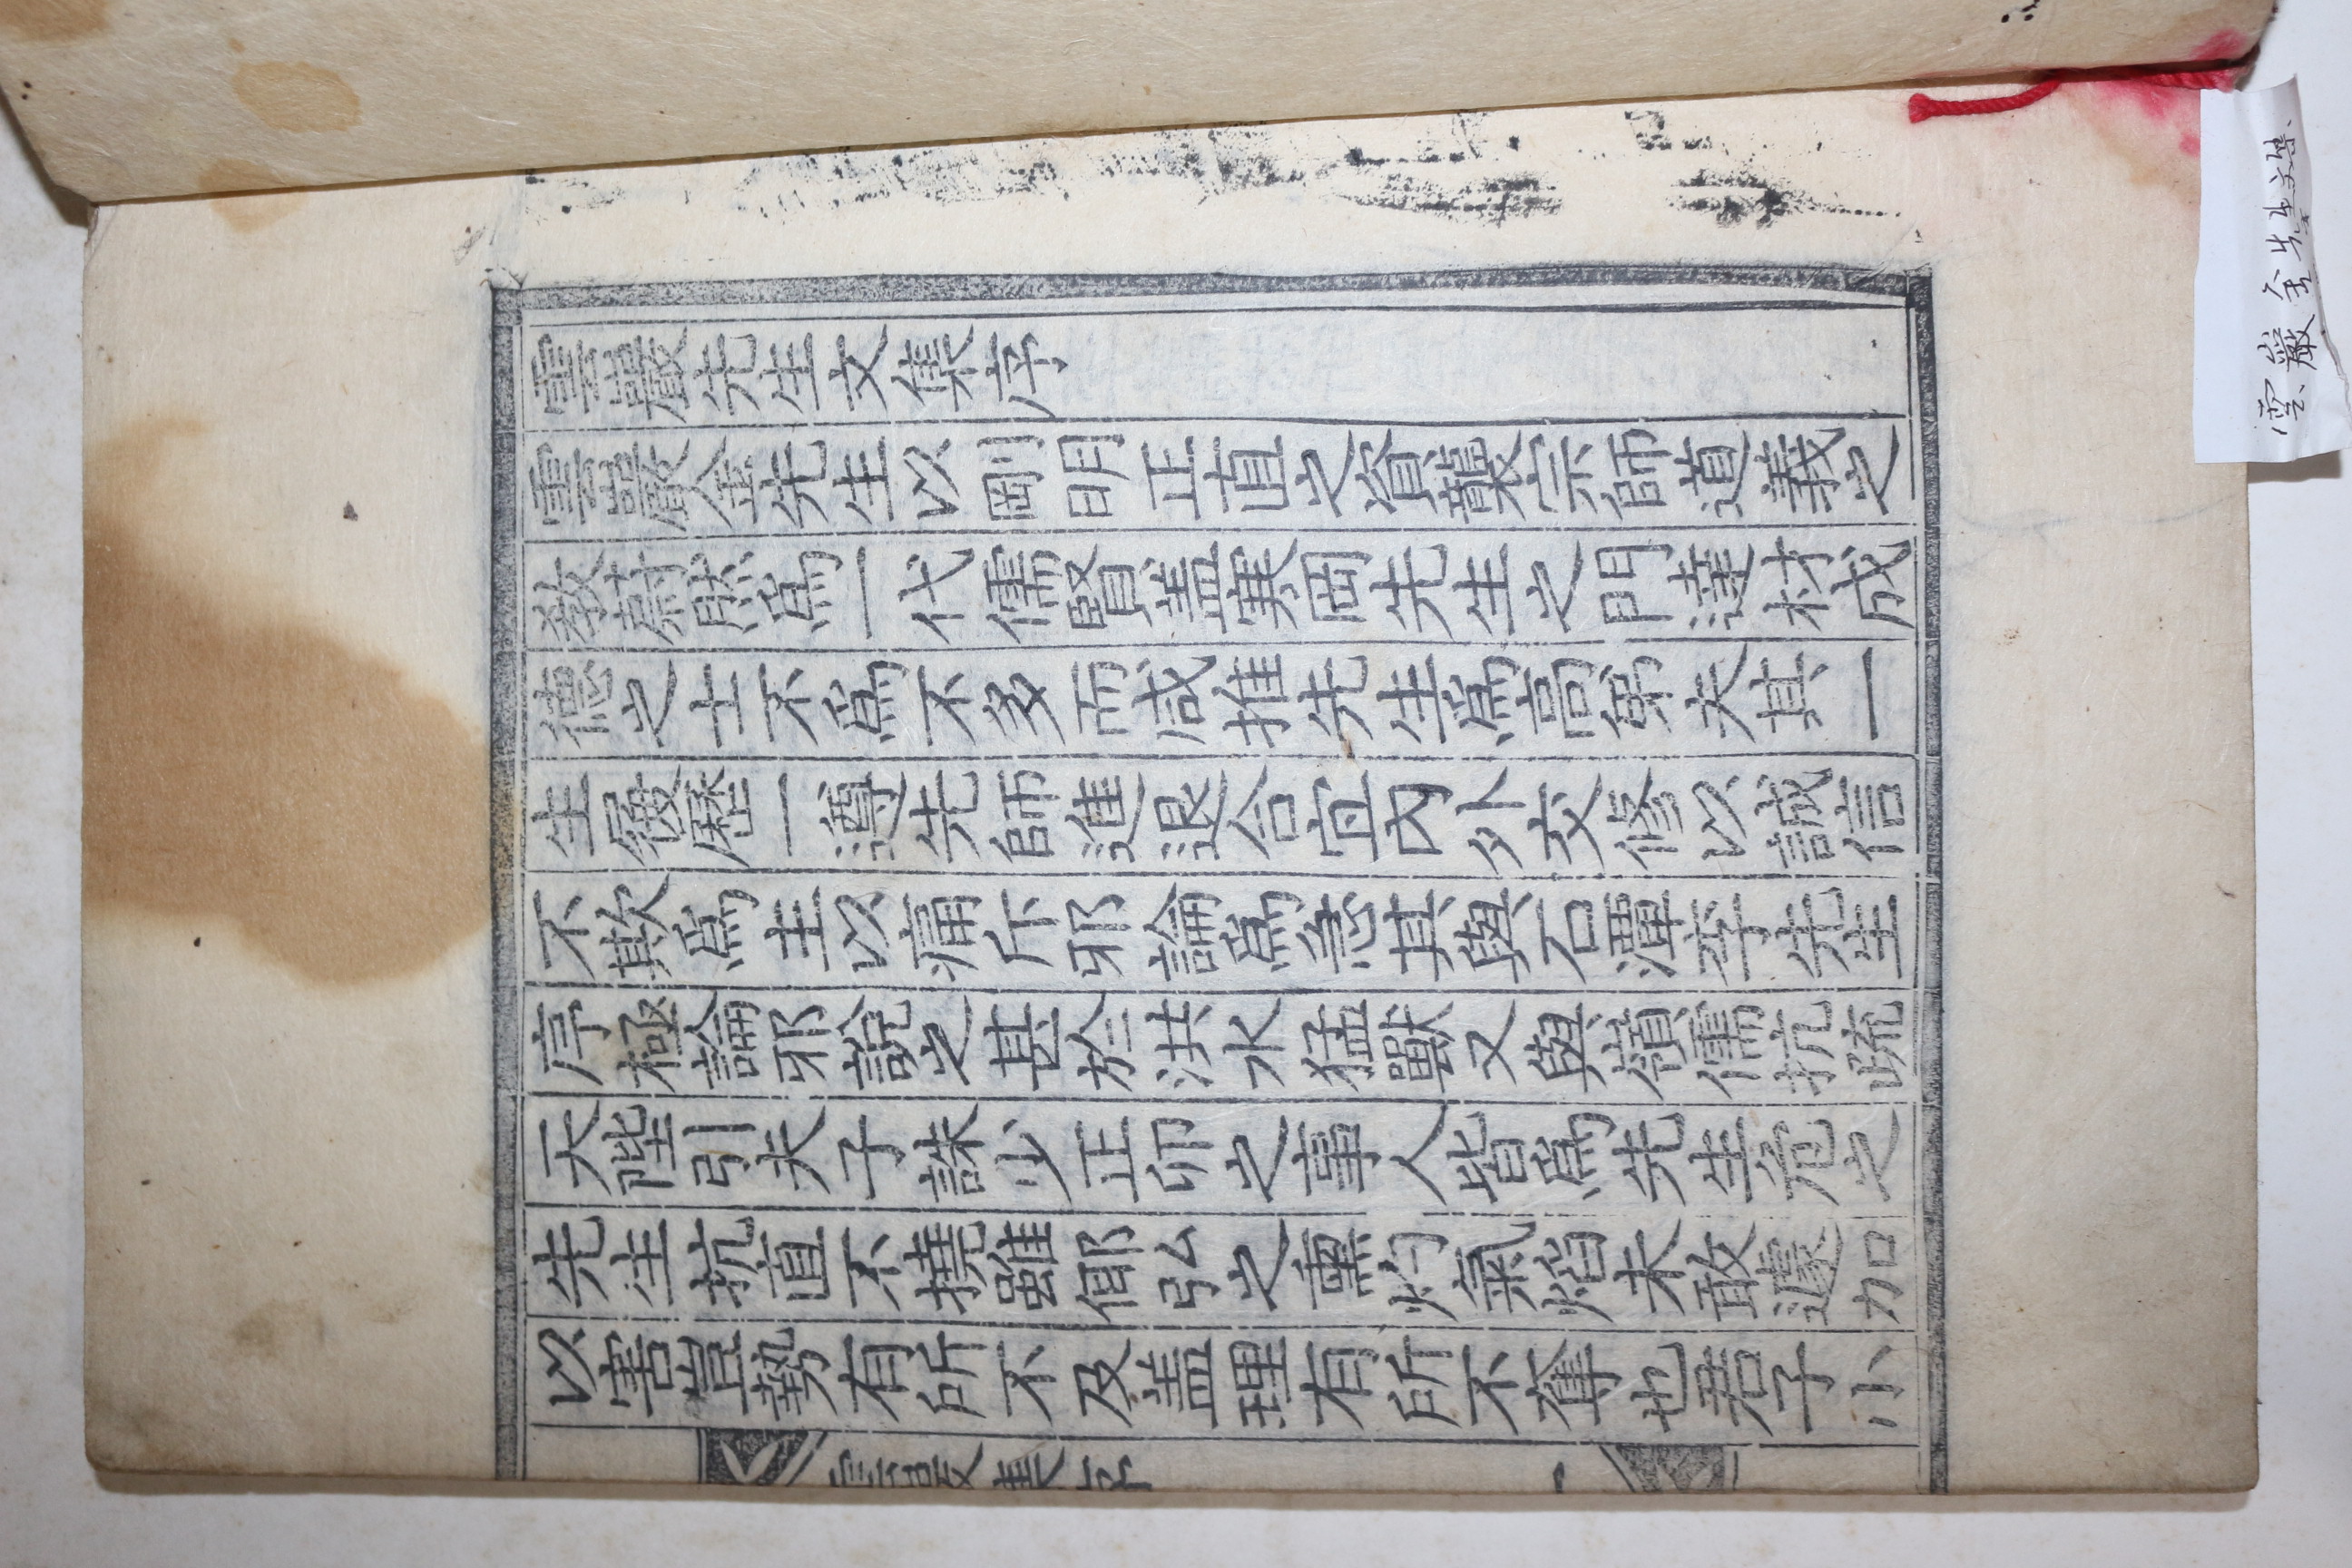 雲巖先生文集序
雲巖金先生以剛明正直之資襲宗師道義之
教蔚然爲一代儒賢盖寒岡先生之門達材成
德之士不爲不多而咸推先生爲高第夫其一
生履歷一遵先師進退合宜內外交修以誠信
不欺爲主以痛斥邪論爲急其與石潭李先生
序極論邪說之甚於洪水猛獸又與嶺儒抗疏
天陛引夫子誅少正卯之事人皆爲先生危之
先生抗直不撓雖鄊弘之熏灼氣焰未敢遽加
以害豈勢有所不及盖理有所不奪也君子小
雲巖集序
一
雲巖金先生文集